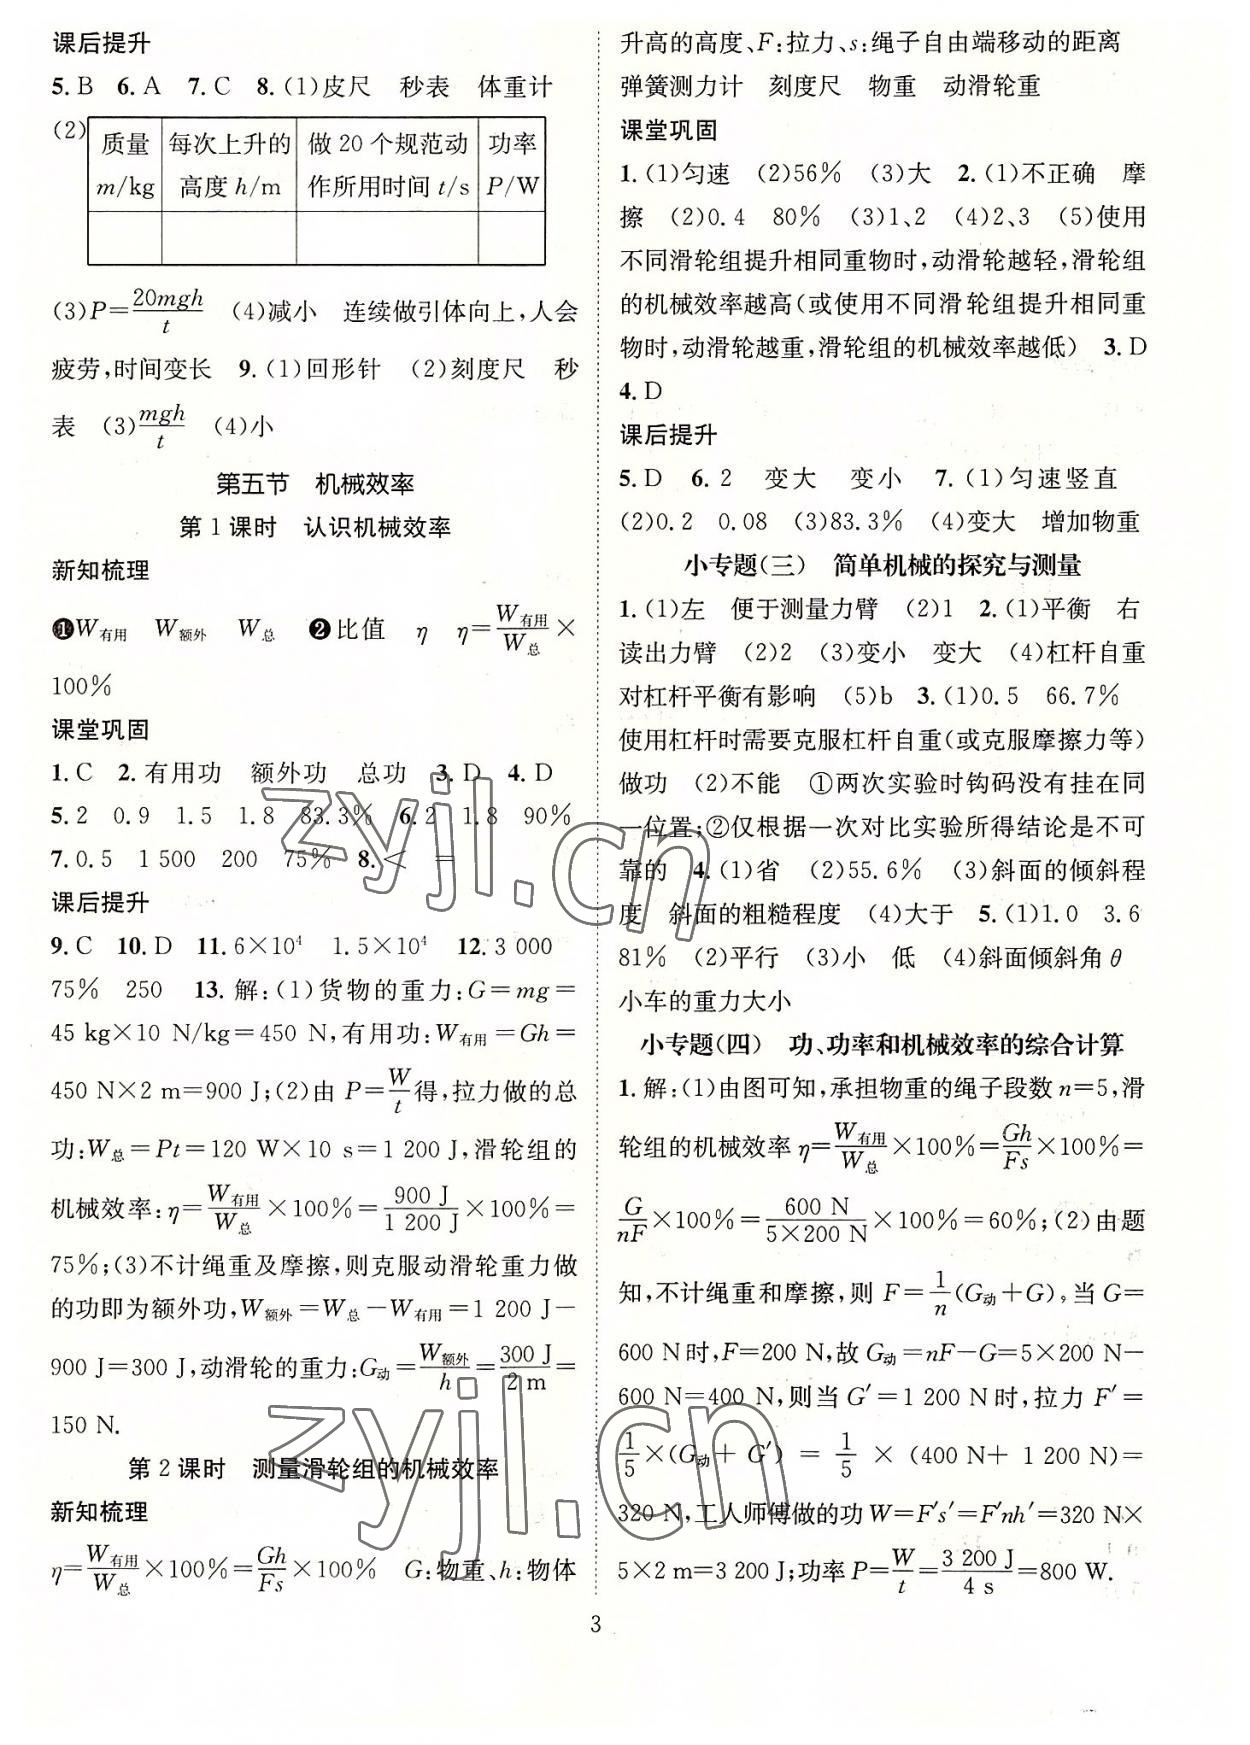 课后提升
5. B 6. A 7. C 8. (1)皮尺 秒表 体重计
(2)
质量 m/kg | 每次上升的高度 h/m | 做 20 个规范动作所用时间 t/s | 功率 P/W
(3)P=20mgh/t (4)减小 连续做引体向上,人会
疲劳,时间变长 9. (1)回形针 (2)刻度尺 秒
表 (3)mgh/t (4)小
第五节 机械效率
第 1 课时 认识机械效率
新知梳理
❶W有用 W额外 W总 ❷比值 η η=W有用/W总×
100%
课堂巩固
1. C 2. 有用功 额外功 总功 3. D 4. D
5. 2 0.9 1.5 1.8 83.3% 6. 2 1.8 90%
7. 0.5 1 500 200 75% 8. < =
课后提升
9. C 10. D 11. 6×10⁴ 1.5×10⁴ 12. 3 000
75% 250 13. 解:(1)货物的重力:G=mg=
45 kg×10 N/kg=450 N,有用功:W有用=Gh=
450 N×2 m=900 J;(2)由 P=W/t得,拉力做的总
功:W总=Pt=120 W×10 s=1 200 J,滑轮组的
机械效率:η=W有用/W总×100%=900 J/1 200 J×100%=
75%;(3)不计绳重及摩擦,则克服动滑轮重力做
的功即为额外功,W额外=W总-W有用=1 200 J-
900 J=300 J,动滑轮的重力:G动=W额外/h=300 J/2 m=
150 N.
第 2 课时 测量滑轮组的机械效率
新知梳理
η=W有用/W总×100%=Gh/Fs×100% G:物重、h:物体
升高的高度、F:拉力、s:绳子自由端移动的距离
弹簧测力计 刻度尺 物重 动滑轮重
课堂巩固
1. (1)匀速 (2)56% (3)大 2. (1)不正确 摩
擦 (2)0.4 80% (3)1、2 (4)2、3 (5)使用
不同滑轮组提升相同重物时,动滑轮越轻,滑轮组
的机械效率越高(或使用不同滑轮组提升相同重
物时,动滑轮越重,滑轮组的机械效率越低) 3. D
4. D
课后提升
5. D 6. 2 变大 变小 7. (1)匀速竖直
(2)0.2 0.08 (3)83.3% (4)变大 增加物重
小专题(三) 简单机械的探究与测量
1. (1)左 便于测量力臂 (2)1 2. (1)平衡 右
读出力臂 (2)2 (3)变小 变大 (4)杠杆自重
对杠杆平衡有影响 (5)b 3. (1)0.5 66.7%
使用杠杆时需要克服杠杆自重(或克服摩擦力等)
做功 (2)不能 ①两次实验时钩码没有挂在同
一位置;②仅根据一次对比实验所得结论是不可
靠的 4. (1)省 (2)55.6% (3)斜面的倾斜程
度 斜面的粗糙程度 (4)大于 5. (1)1.0 3.6
81% (2)平行 (3)小 低 (4)斜面倾斜角 θ
小车的重力大小
小专题(四) 功、功率和机械效率的综合计算
1. 解:(1)由图可知,承担物重的绳子段数 n=5,滑
轮组的机械效率 η=W有用/W总×100%=Gh/Fs×100%=
G/nF×100%=600 N/5×200 N×100%=60%;(2)由题
知,不计绳重和摩擦,则 F=1/n(G动+G),当 G=
600 N 时,F=200 N,故 G动=nF-G=5×200 N-
600 N=400 N,则当 G′=1 200 N 时,拉力 F′=
1/5×(G动+G′)=1/5×(400 N+1 200 N)=
320 N,工人师傅做的功 W=F′s′=F′nh′=320 N×
5×2 m=3 200 J;功率 P=W/t=3 200 J/4 s=800 W.
3
zyjl.cn
zyjl.cn